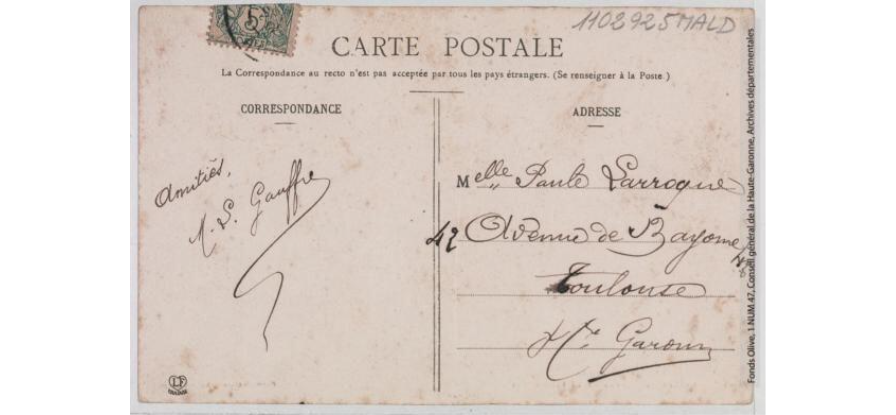 5
1102925MALD
CARTE POSTALE
La Correspondance au recto n'est pas acceptée par tous les pays étrangers. (Se renseigner à la Poste.)
CORRESPONDANCE
Amitiés,
M. L. Gauffre
ADRESSE
Melle Paule Larroque
42 Avenue de Bayonne
Toulouse
Hte Garonne
LF
Fonds Olive, 1 NUM 47, Conseil général de la Haute-Garonne, Archives départementales